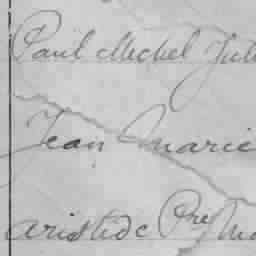 Paul Michel Jul
Jean Marie
aristide Pre